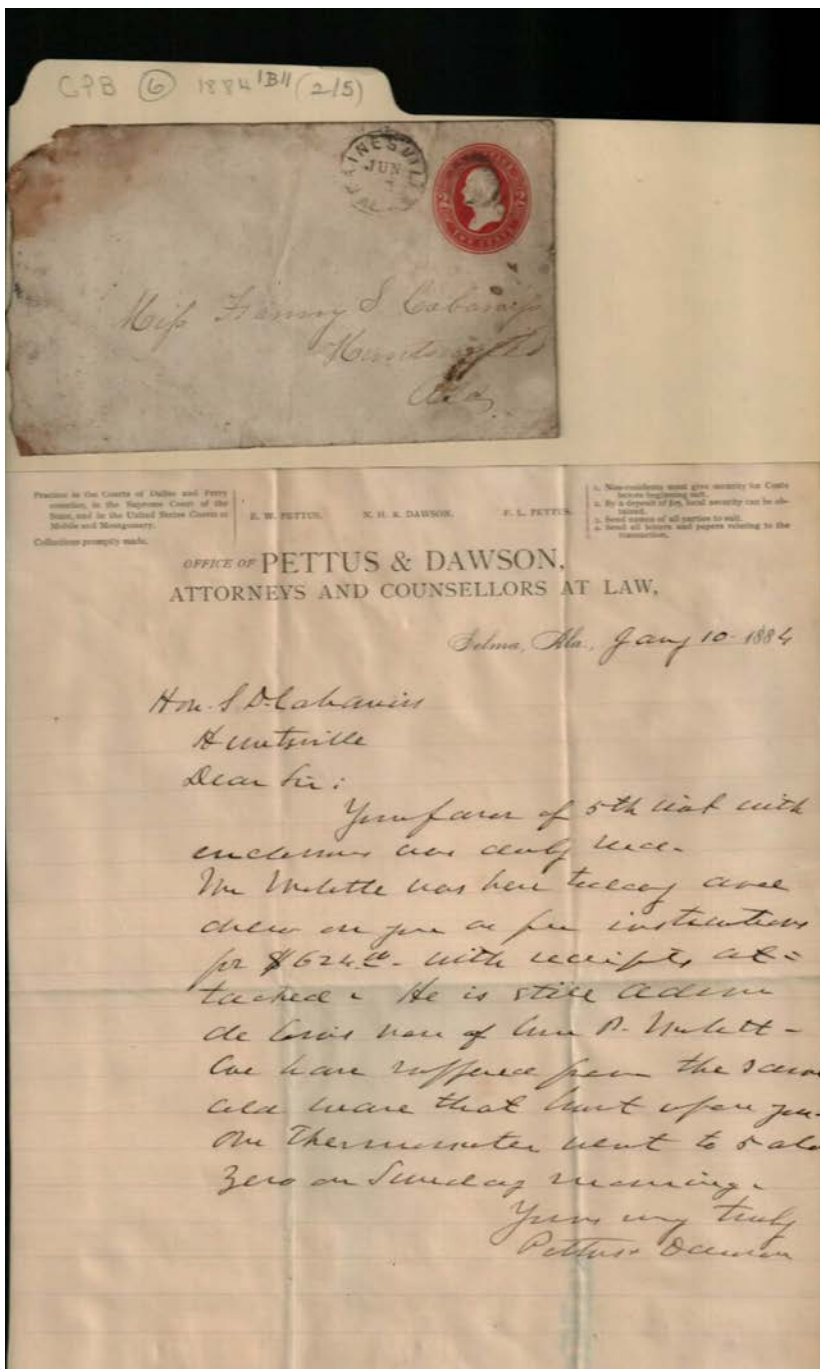 CPB ⑥ 1884 "B" (2/5)
GAINESVILLE
JUN
AL
TWO CENTS
Miss Fanny S Cabaniss
Huntsville
Ala
Practice in the Courts of Dallas and Perry
counties, in the Supreme Court of the
State, and in the United States Courts at
Mobile and Montgomery.
Collections promptly made.
E. W. PETTUS. N. H. R. DAWSON. F. L. PETTUS.
1. Non-residents must give security for Costs
before beginning suit.
2. By a deposit of local security can be ob-
tained.
3. Send names of all parties to suit.
4. Send all letters and papers relating to the
transaction.
OFFICE OF PETTUS & DAWSON,
ATTORNEYS AND COUNSELLORS AT LAW,
Selma, Ala., Jany 10 1884
Hon. S D. Cabaniss
Huntsville
Dear Sir:
Your favor of 5th inst with
enclosures was duly recd.
Mr was here today and
drew on you as per instructions
for $624 - with receipts at=
tached. He is still Adm
de bonis non of
We have suffered from the same
cold wave that burst upon you.
Our Thermometer went to 5 
Zero on Sunday morning.
Yours very truly
Pettus & Dawson